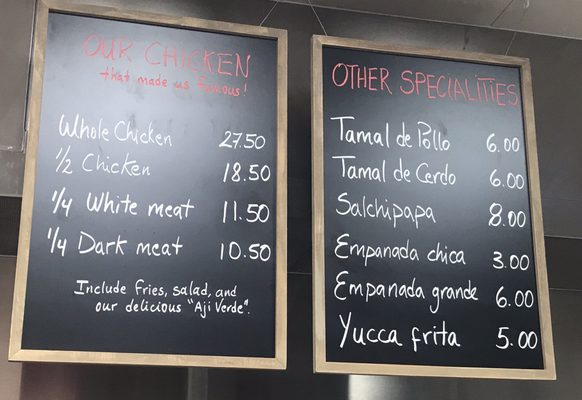 OUR CHICKEN
that made us famous!
Whole Chicken 27.50
1/2 Chicken 18.50
1/4 White meat 11.50
1/4 Dark meat 10.50
Include fries, salad, and
our delicious "Aji Verde".
OTHER SPECIALITIES
Tamal de Pollo 6.00
Tamal de Cerdo 6.00
Salchipapa 8.00
Empanada chica 3.00
Empanada grande 6.00
Yucca frita 5.00